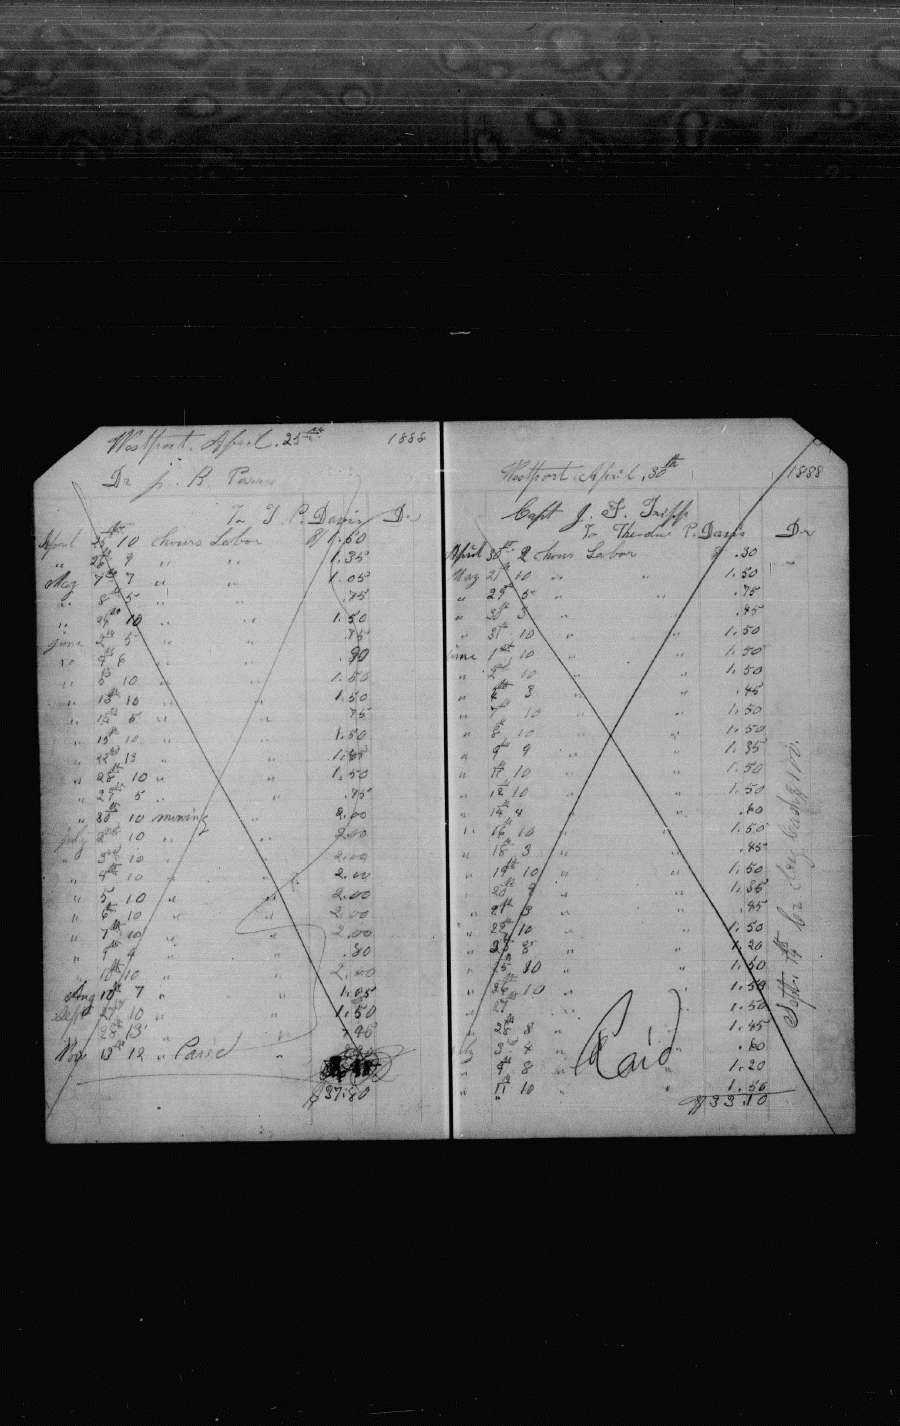 Westport, April. 25th 1888
Dr J. B. Parris
To T. P. Davis Dr
April 25th 10 hours Labor $1.50
" 26th 9 " " 1.35
May 7th 7 " " 1.05
" 8th 5 " .75
" 10 " " 1.50
June 2nd 5 " .75
" 6 " .90
" 5th 10 " 1.50
" 13th 10 " " 1.50
" 14th 5 " " .75
" 15th 10 " 1.50
" 13 " "
" 10 " " 1.50
" 29th 5 " " .75
" 30th 10 mowing " 2.00
July 2nd 10 " " 2.00
" 3rd 10 " 2.00
" 4th 10 " " 2.00
" 5th 10 " 2.00
" 6th 10 " 2.00
" 7th 10 " " 2.00
" 9th 4 " .80
" 10th 10 " 2.00
Aug 10th 7 " " 1.05
Sept 10 " " 1.50
" 13 "
Nov 13th 12 " Paid "
$37.80
Westport, April, 30th 1888
Capt J. F. Tripp
To Theodore P. Davis Dr
April 30th 2 hours Labor $ .30
May 10 " " 1.50
" 29th 5 " " .75
" 3 " " .45
" 31st 10 " " 1.50
June 1st 10 " " 1.50
" 2nd 10 " " 1.50
" 3 " " .45
" 7th 10 " " 1.50
" 8th 10 " " 1.50
" 9th 9 " " 1.35
" 11th 10 " " 1.50
" 12th 10 " " 1.50
" 14th 4 " " .60
" 16th 10 " " 1.50
" 18th 3 " " .45
" 19th 10 " " 1.50
" 20th 9 " " 1.35
" 21st 3 " " .45
" 10 " " 1.50
" 8 " " 1.20
" 10 " " 1.50
" 26th 10 " " 1.50
" 1.50
" 1.45
July 3rd 4 " .60
" 9th 8 " " 1.20
" 11th 10 " 1.50
$33.10
Paid
Sept. 14th by Cash